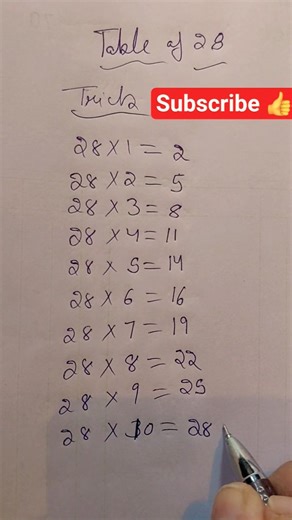 Table of 28
Trick
Subscribe 👍
28 × 1 = 2
28 × 2 = 5
28 × 3 = 8
28 × 4 = 11
28 × 5 = 14
28 × 6 = 16
28 × 7 = 19
28 × 8 = 22
28 × 9 = 25
28 × 10 = 28